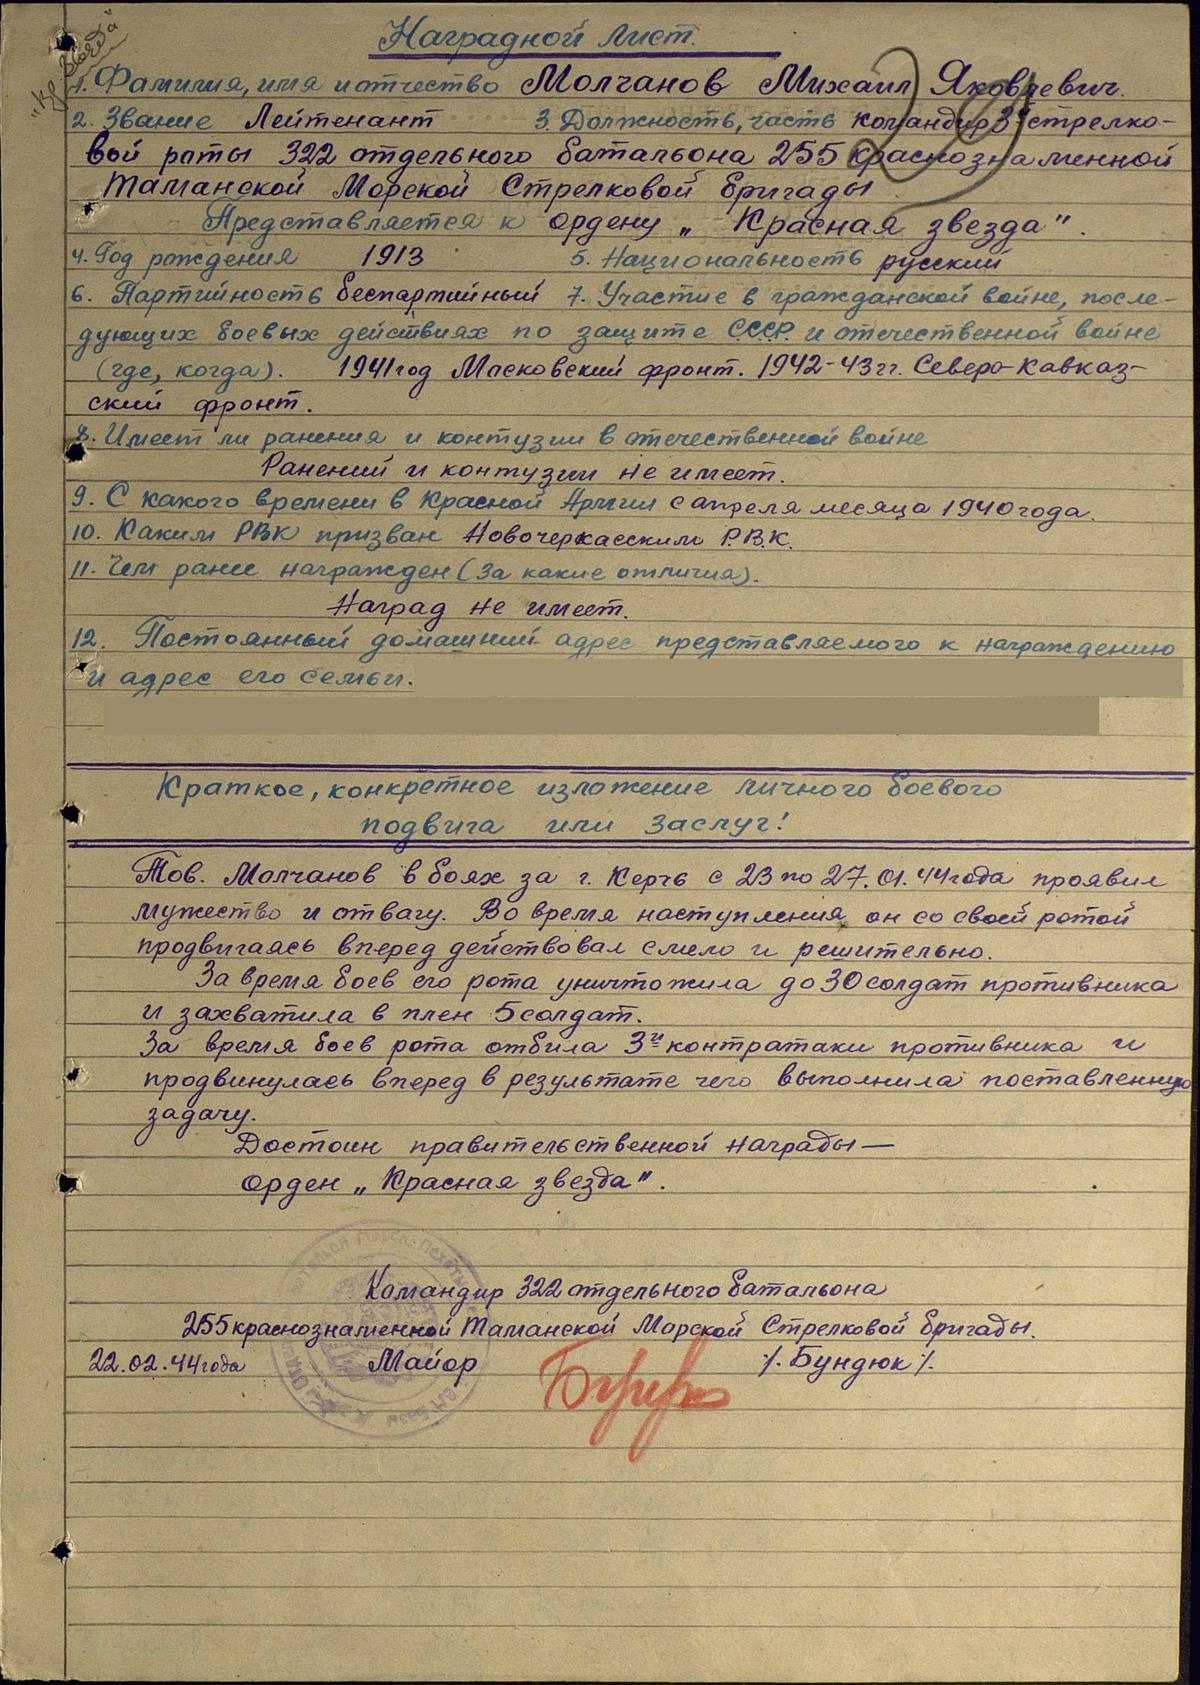 "Кр. Звезда"
Наградной лист.
1. Фамилия, имя и отчество Молчанов Михаил Яковлевич.
2. Звание Лейтенант 3. Должность, часть командир 3й стрелко-
вой роты 322 отдельного батальона 255 краснознаменной
Таманской Морской Стрелковой бригады
Представляется к ордену „Красная звезда".
4. Год рождения 1913 5. Национальность русский
6. Партийность беспартийный 7. Участие в гражданской войне, после-
дующих боевых действиях по защите СССР и отечественной войне
(где, когда). 1941 год Московский фронт. 1942-43 гг. Северо-Кавказ-
ский фронт.
8. Имеет ли ранения и контузии в отечественной войне
Ранений и контузии не имеет.
9. С какого времени в Красной Армии с апреля месяца 1940 года.
10. Каким РВК призван Новочеркасским Р.В.К.
11. Чем ранее награжден (за какие отличия).
Наград не имеет.
12. Постоянный домашний адрес представляемого к награждению
и адрес его семьи.
Краткое, конкретное изложение личного боевого
подвига или заслуг!
Тов. Молчанов в боях за г. Керчь с 23 по 27.01.44 года проявил
мужество и отвагу. Во время наступления он со своей ротой
продвигаясь вперед действовал смело и решительно.
За время боев его рота уничтожила до 30 солдат противника
и захватила в плен 5 солдат.
За время боев рота отбила 3и контратаки противника и
продвинулась вперед в результате чего выполнила поставленную
задачу.
Достоин правительственной награды —
орден „Красная звезда".
Командир 322 отдельного батальона
255 краснознаменной Таманской Морской Стрелковой бригады.
22.02.44 года Майор /. Бундюк /.